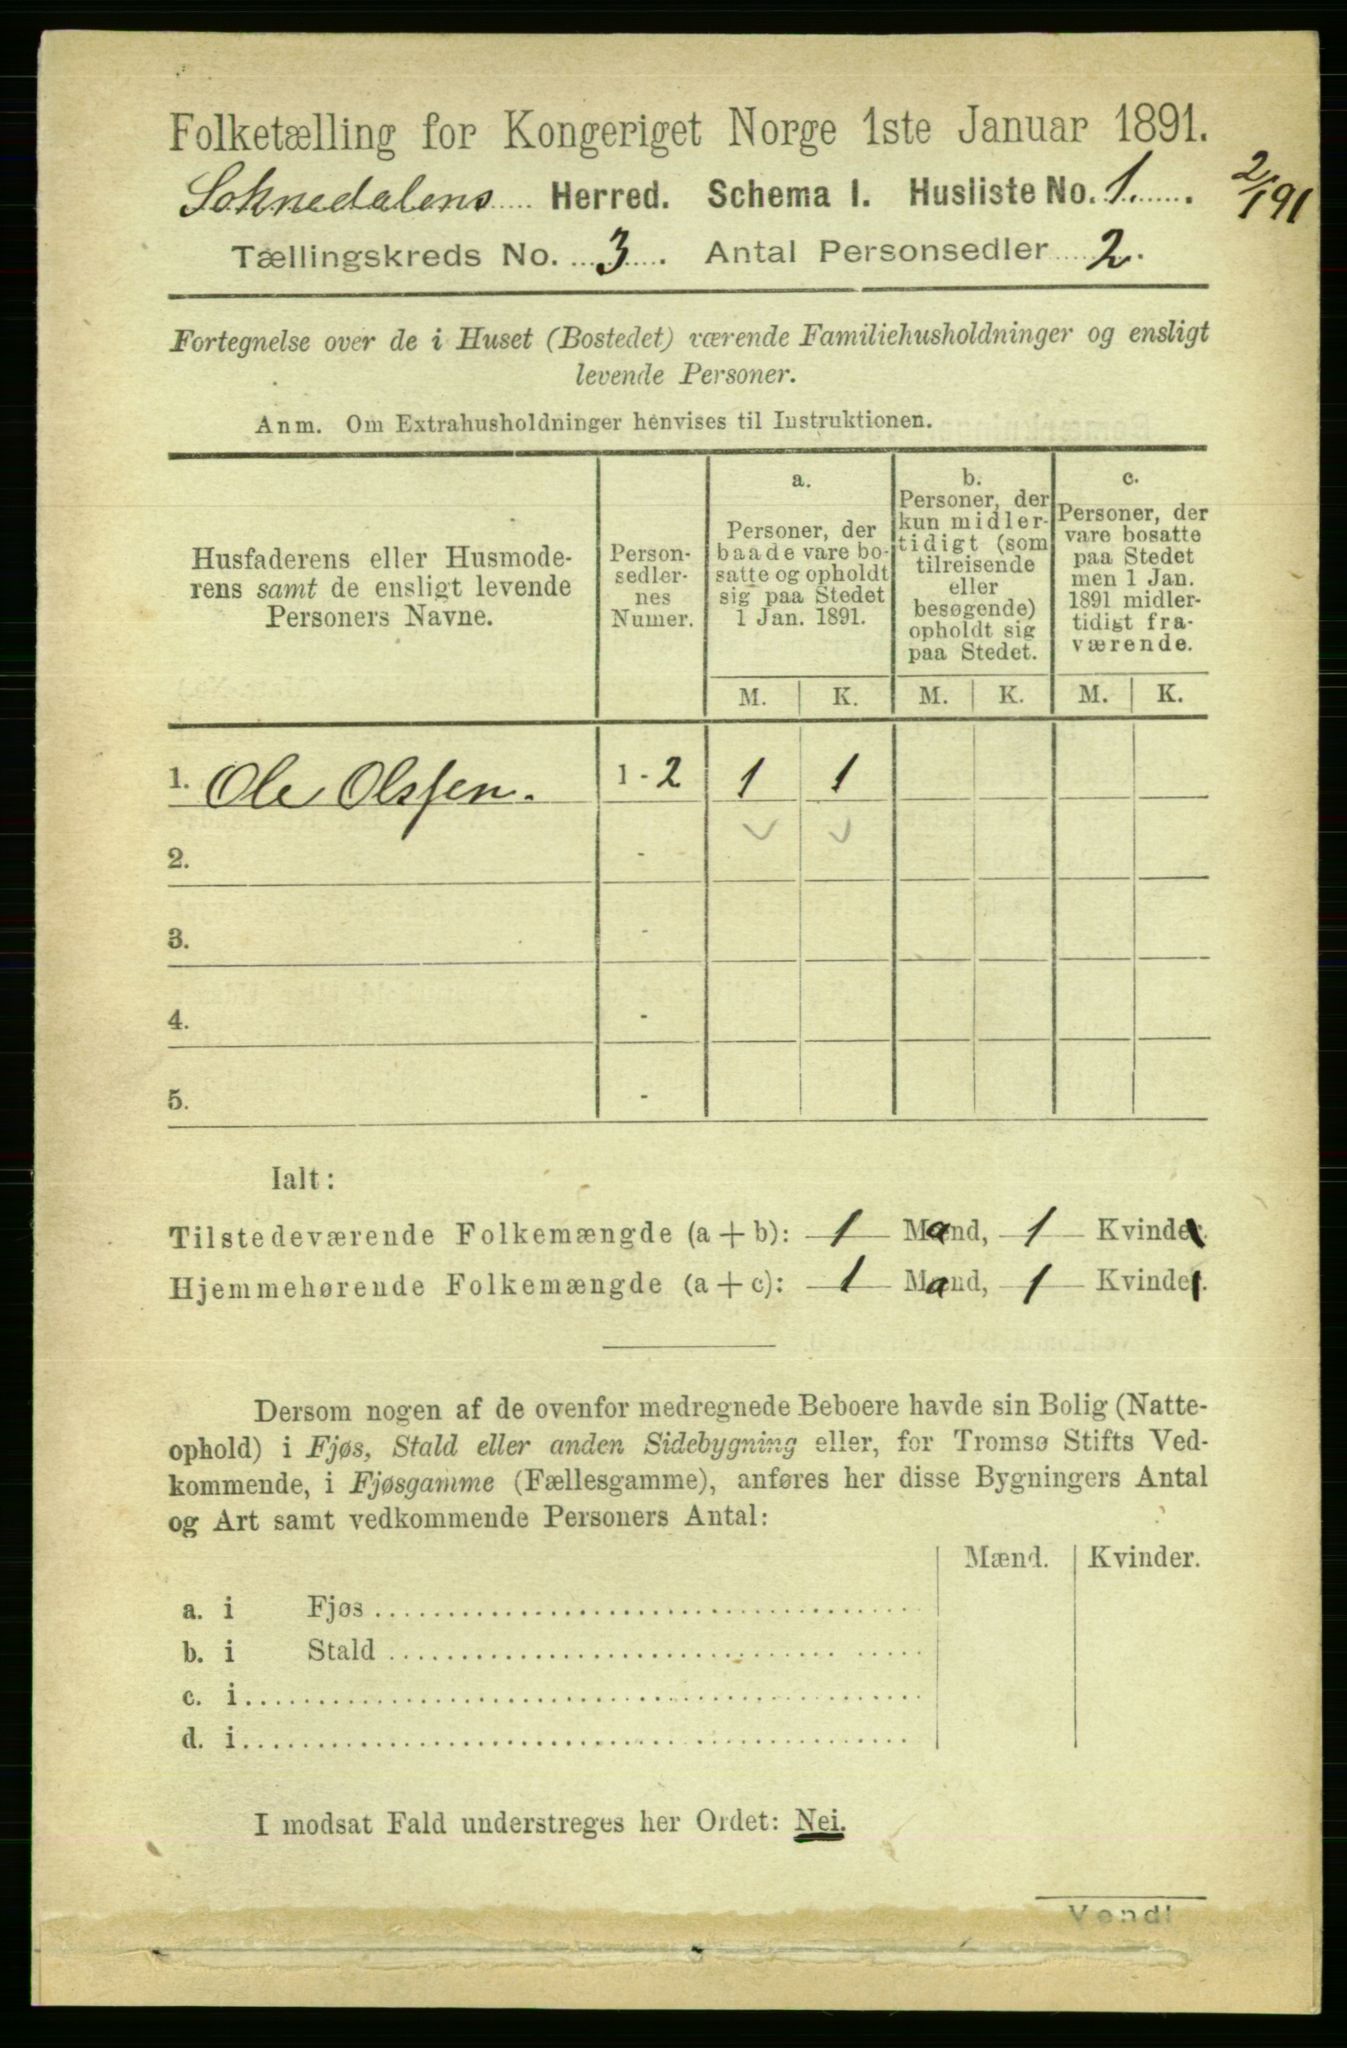 Folketælling for Kongeriget Norge 1ste Januar 1891.
Soknedalens Herred. Schema I. Husliste No. 1.
2/1 91
Tællingskreds No. 3. Antal Personsedler 2.
Fortegnelse over de i Huset (Bostedet) værende Familiehusholdninger og ensligt
levende Personer.
Anm. Om Extrahusholdninger henvises til Instruktionen.
Husfaderens eller Husmode-
rens samt de ensligt levende
Personers Navne.
Person-
sedler-
nes
Numer.
a.
Personer, der
baade vare bo-
satte og opholdt
sig paa Stedet
1 Jan. 1891.
b.
Personer, der
kun midler-
tidigt (som
tilreisende
eller
besøgende)
opholdt sig
paa Stedet.
c.
Personer, der
vare bosatte
paa Stedet
men 1 Jan.
1891 midler-
tidigt fra-
værende.
M. K. M. K. M. K.
1. Ole Olssen. 1 - 2 1 1
2. -
3. -
4. -
5. -
Ialt:
Tilstedeværende Folkemængde (a + b): 1 Mand, 1 Kvinde
Hjemmehørende Folkemængde (a + c): 1 Mand, 1 Kvinde.
Dersom nogen af de ovenfor medregnede Beboere havde sin Bolig (Natte-
ophold) i Fjøs, Stald eller anden Sidebygning eller, for Tromsø Stifts Ved-
kommende, i Fjøsgamme (Fællesgamme), anføres her disse Bygningers Antal
og Art samt vedkommende Personers Antal:
Mænd. Kvinder.
a. i Fjøs
b. i Stald
c. i
d. i
I modsat Fald understreges her Ordet: Nei.
Vend!